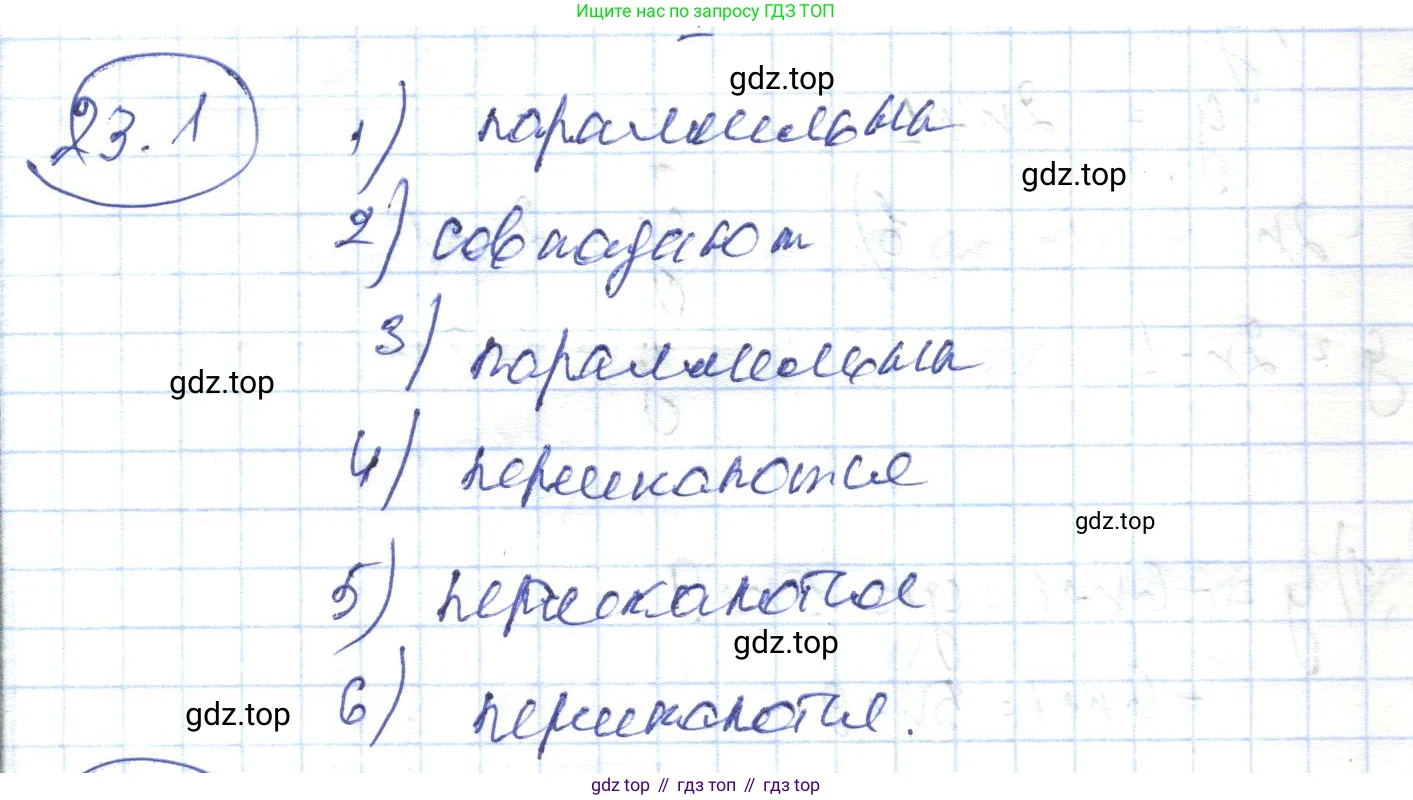 Ищите нас по запросу ГДЗ ТОП
gdz.top
23.1 1) параллельны
gdz.top
2) совпадают
3) параллельны
gdz.top
4) пересекаются
gdz.top
5) пересекаются
gdz.top
6) пересекаются.
gdz.top
gdz top // гдз топ // гдз top